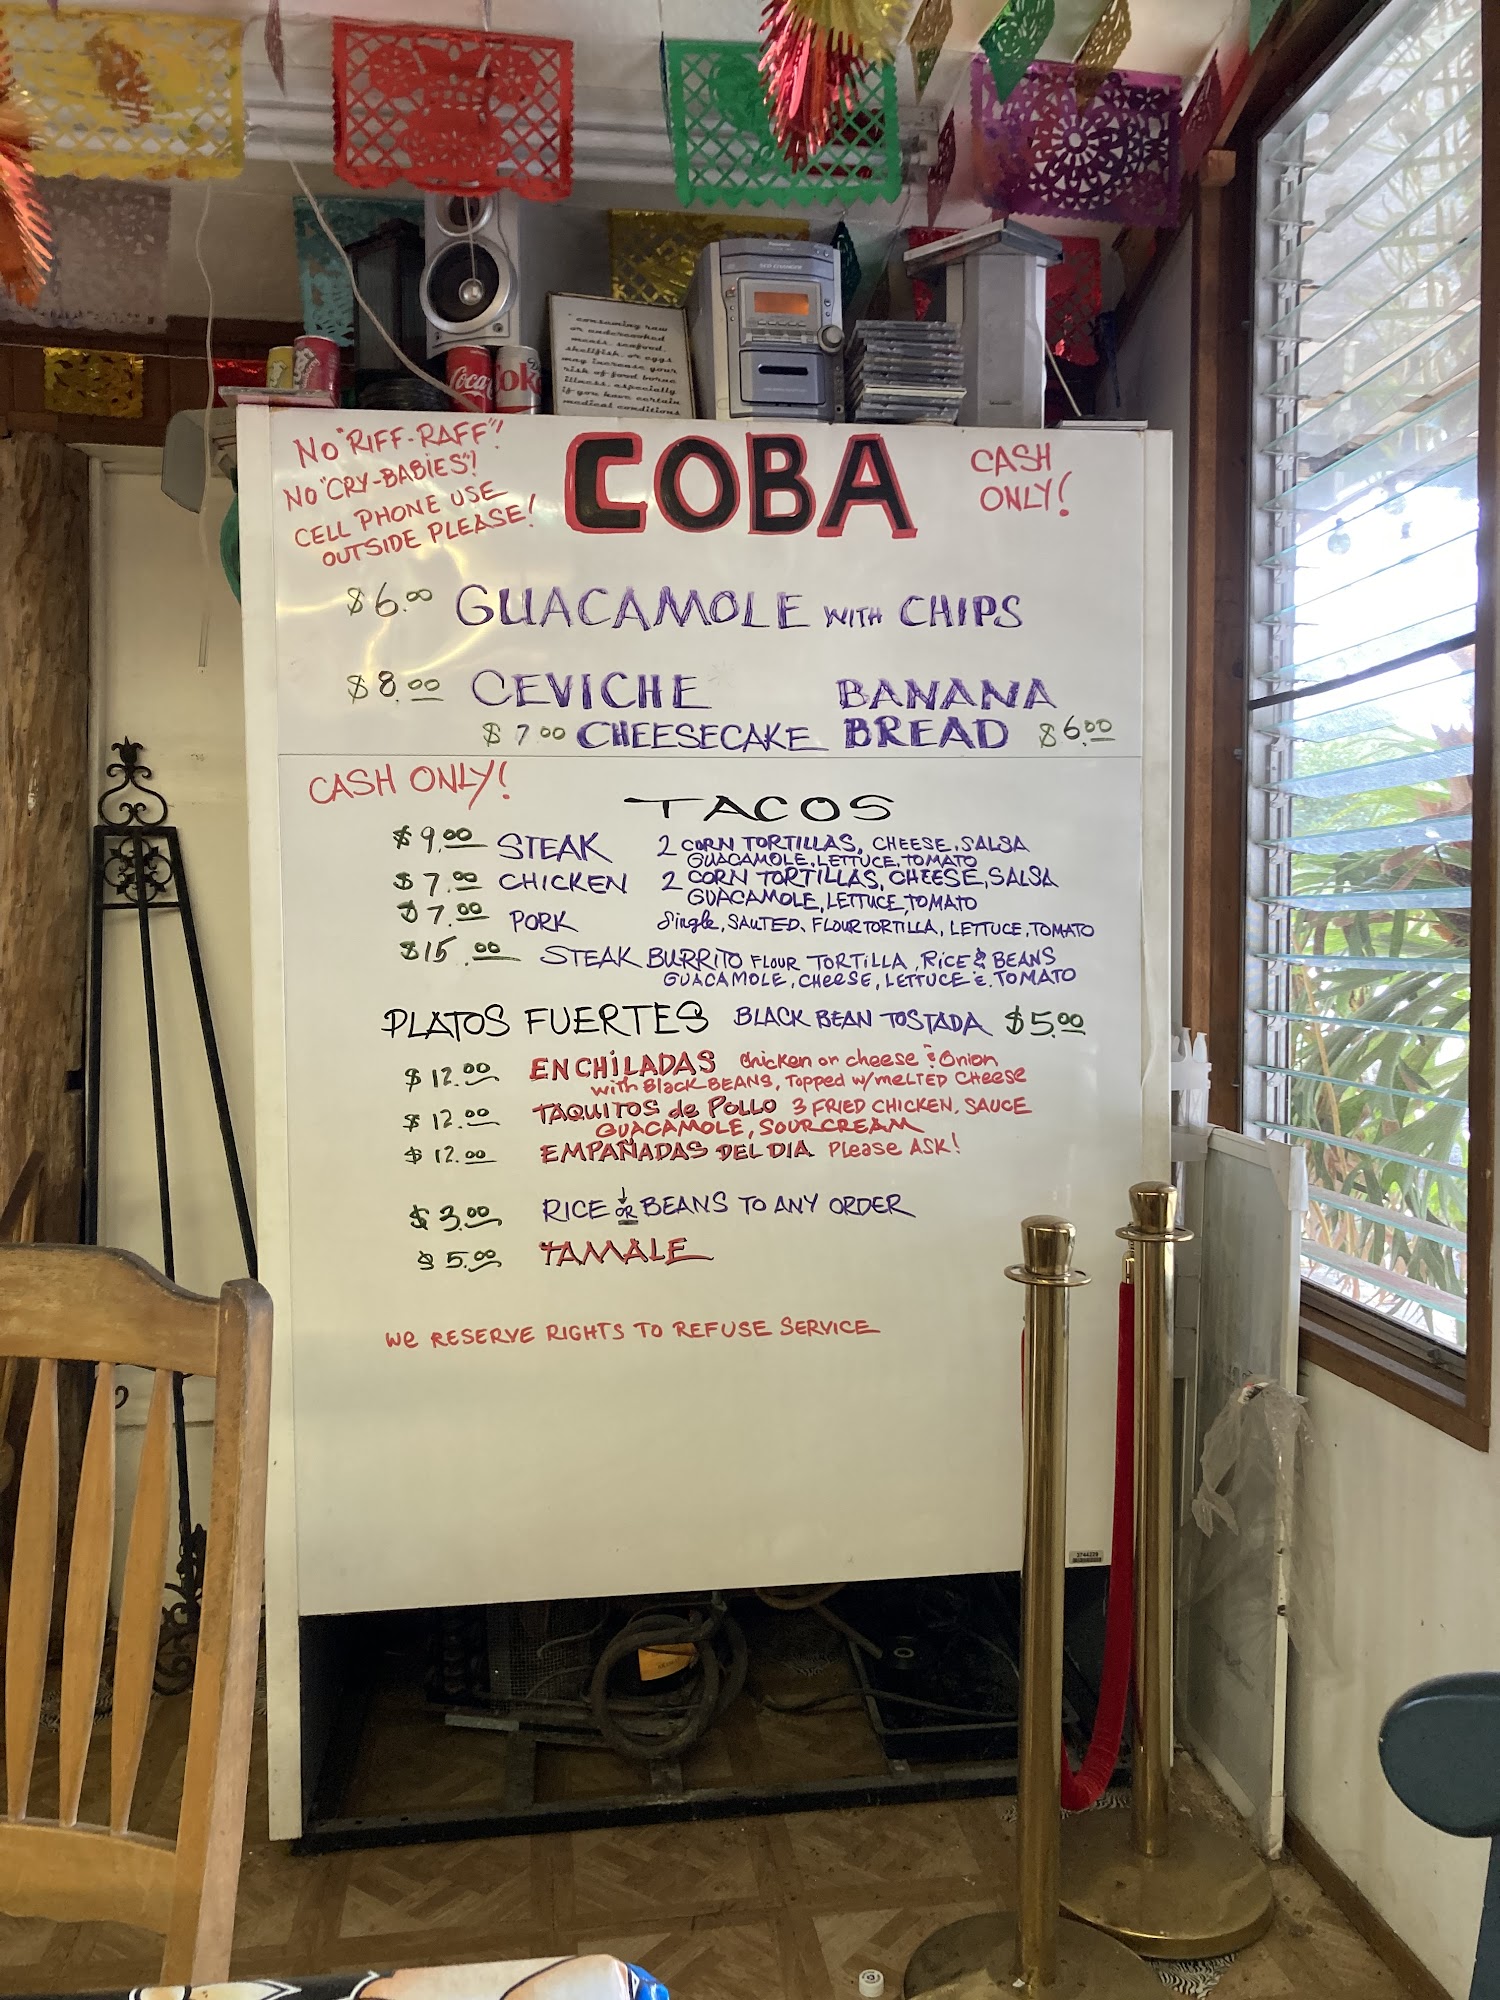 " consuming raw
or undercooked
meats, seafood,
shellfish, or eggs
may increase your
risk of food borne
illness, especially
if you have certain
medical conditions
Coca
Coke
NO "RIFF-RAFF"!
NO "CRY-BABIES"!
CELL PHONE USE
OUTSIDE PLEASE!
COBA
CASH
ONLY!
$6.00 GUACAMOLE WITH CHIPS
$8.00 CEVICHE
$7.00 CHEESECAKE
BANANA
BREAD $6.00
CASH ONLY!
TACOS
$9.00 STEAK 2 CORN TORTILLAS, CHEESE, SALSA
GUACAMOLE, LETTUCE, TOMATO
$7.00 CHICKEN 2 CORN TORTILLAS, CHEESE, SALSA
GUACAMOLE, LETTUCE, TOMATO
$7.00 PORK Single, SAUTED, FLOUR TORTILLA, LETTUCE, TOMATO
$15.00 STEAK BURRITO FLOUR TORTILLA, RICE & BEANS
GUACAMOLE, CHEESE, LETTUCE & TOMATO
PLATOS FUERTES BLACK BEAN TOSTADA $5.00
$12.00 ENCHILADAS Chicken or cheese & Onion
with BLACK BEANS, TOPPED W/MELTED CHEESE
$12.00 TAQUITOS de POLLO 3 FRIED CHICKEN, SAUCE
GUACAMOLE, SOUR CREAM
$12.00 EMPAÑADAS DEL DIA Please ASK!
$3.00 RICE OR BEANS TO ANY ORDER
$5.00 TAMALE
WE RESERVE RIGHTS TO REFUSE SERVICE